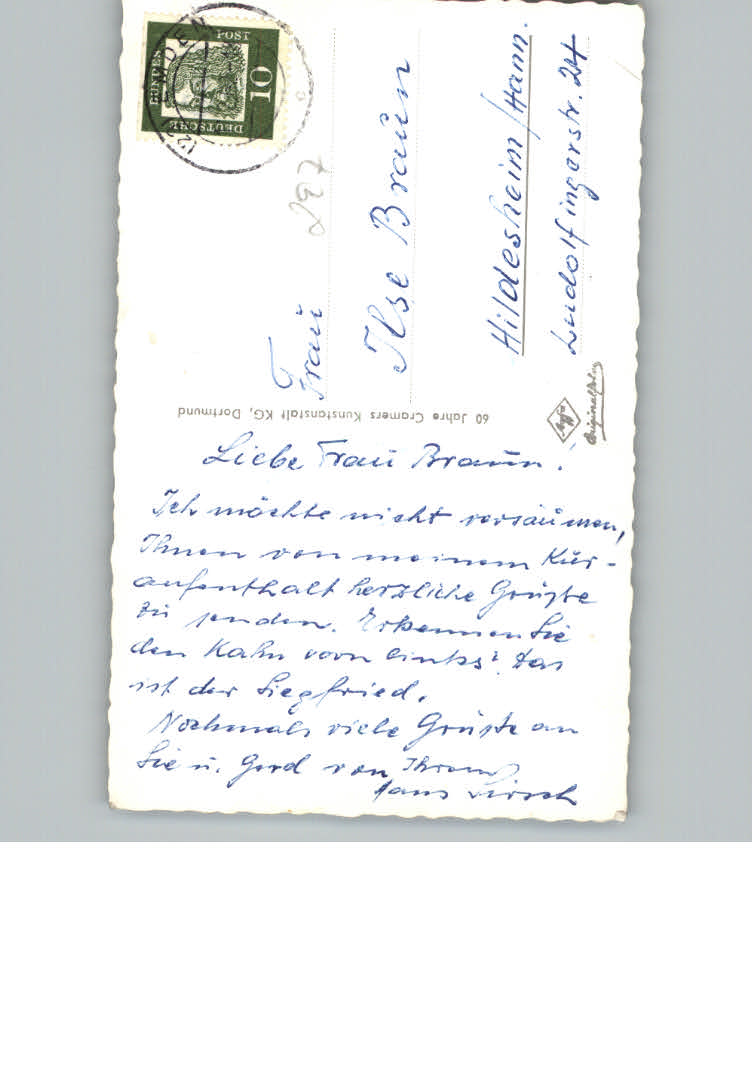 Liebe Frau Braun!
Ich möchte nicht versäumen,
Ihnen von meinem Kur-
aufenthalt herzliche Grüße
zu senden. Erkennen Sie
den Kahn vorn links? Das
ist der Siegfried.
Nochmals viele Grüße an
Sie u. Gerd von Ihrem
Hans
Frau
Ilse Braun
Hildesheim/Hann.
Ludolfingerstr. 24
297
60 Jahre Cramers Kunstanstalt KG, Dortmund
Agfa
Originalfoto
DEUTSCHE
BUNDES
POST
10
EMDEN